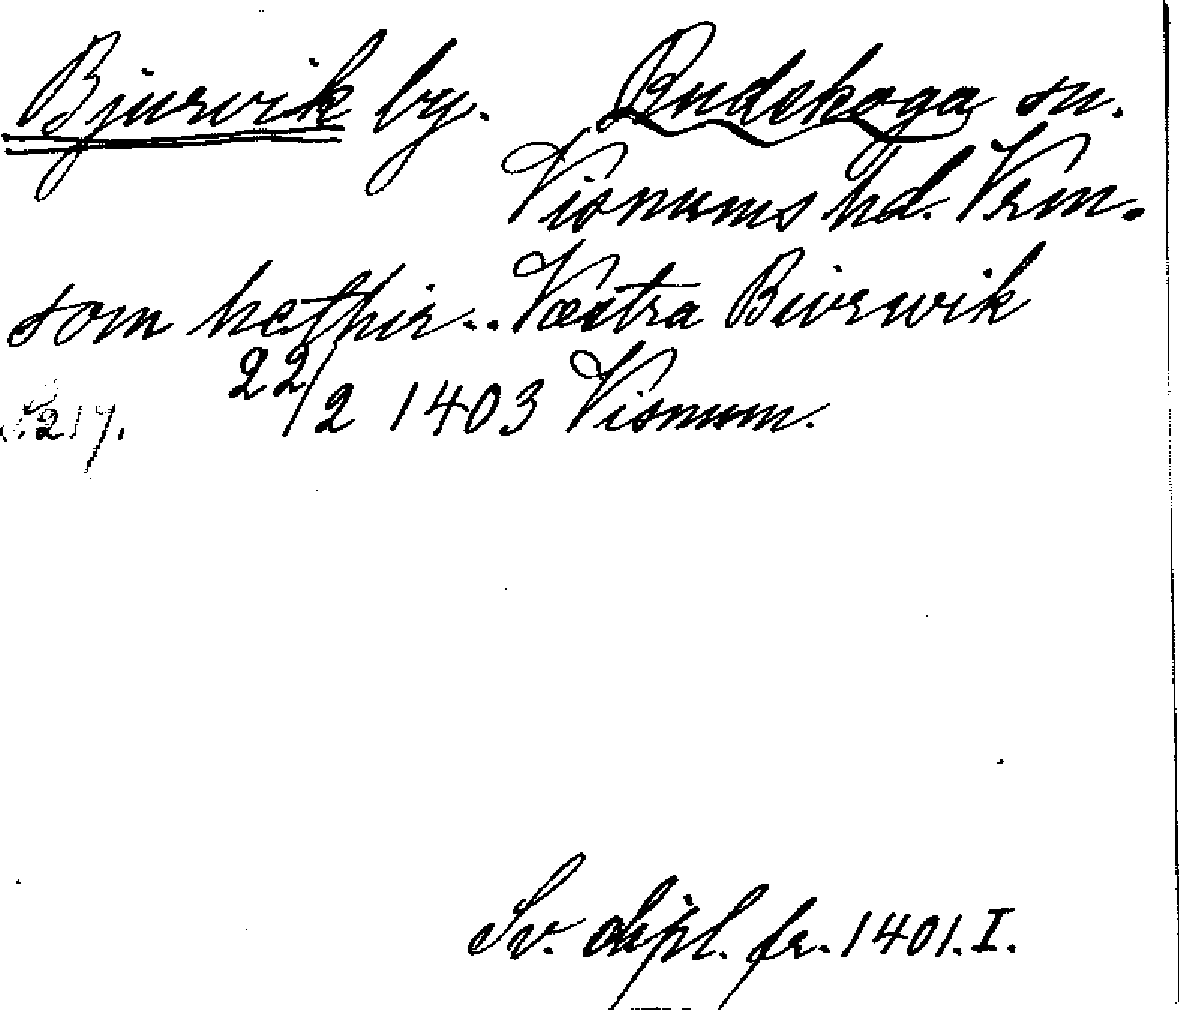 Bjurvik by. Rudskoga sn.
Visnums hd. Vrm.
som hethir.. Væstra Biurwik
22/2 1403 Visnum.
S. 217.
Sv. dipl. fr. 1401. I.